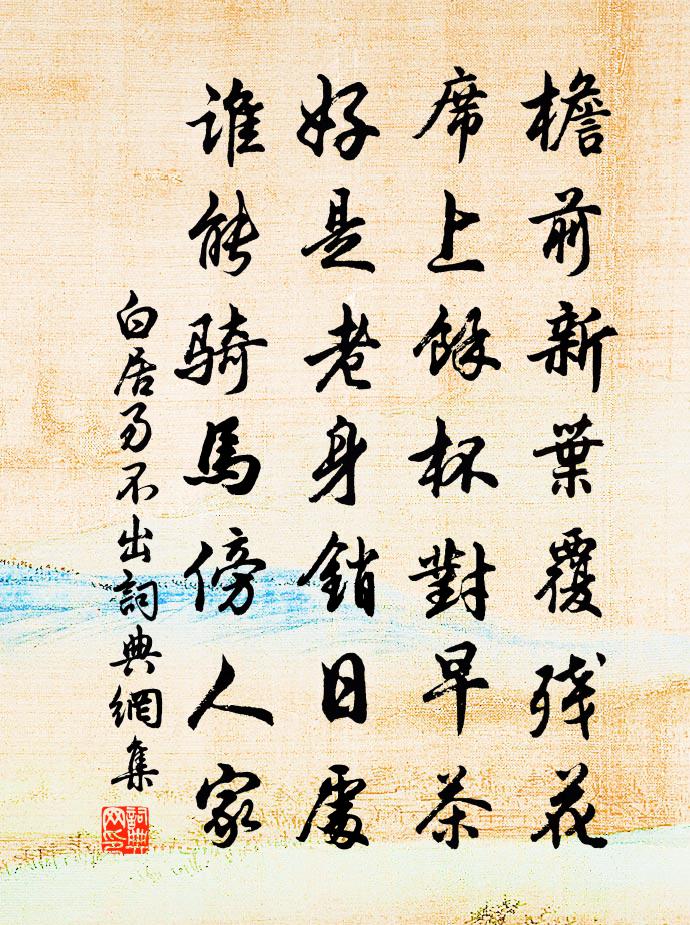 檐前新葉覆殘花
席上餘杯對早茶
好是老身銷日處
誰能騎馬傍人家
白居易不出詞典網集
詞典網印